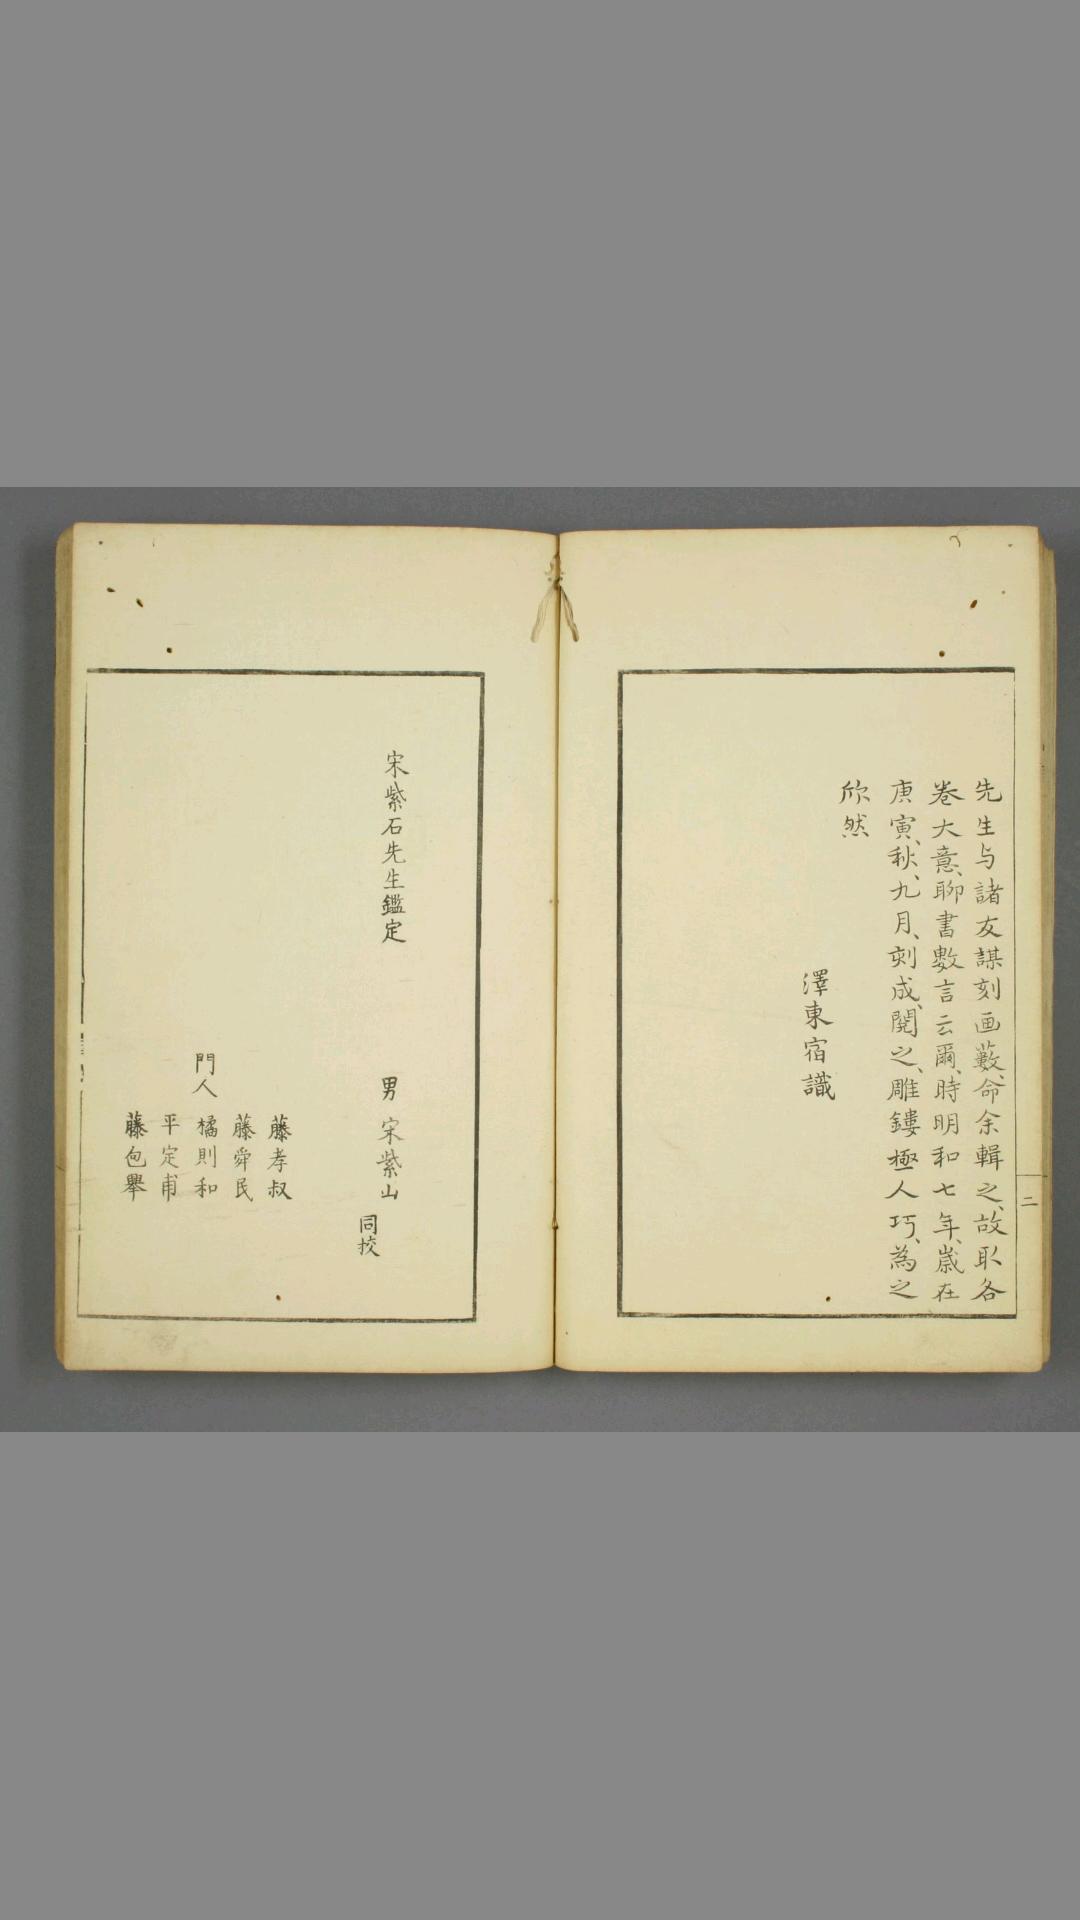 先生与諸友謀刻画藪、命余輯之、故取各
卷大意、聊書數言云爾、時明和七年、歲在
庚寅、秋、九月、刻成、閱之、雕鏤極人巧、為之
欣然
澤東宿識
二
宋紫石先生鑑定
男 宋紫山
同挍
藤孝叔
藤舜民
門人 橘則和
平定甫
藤包舉